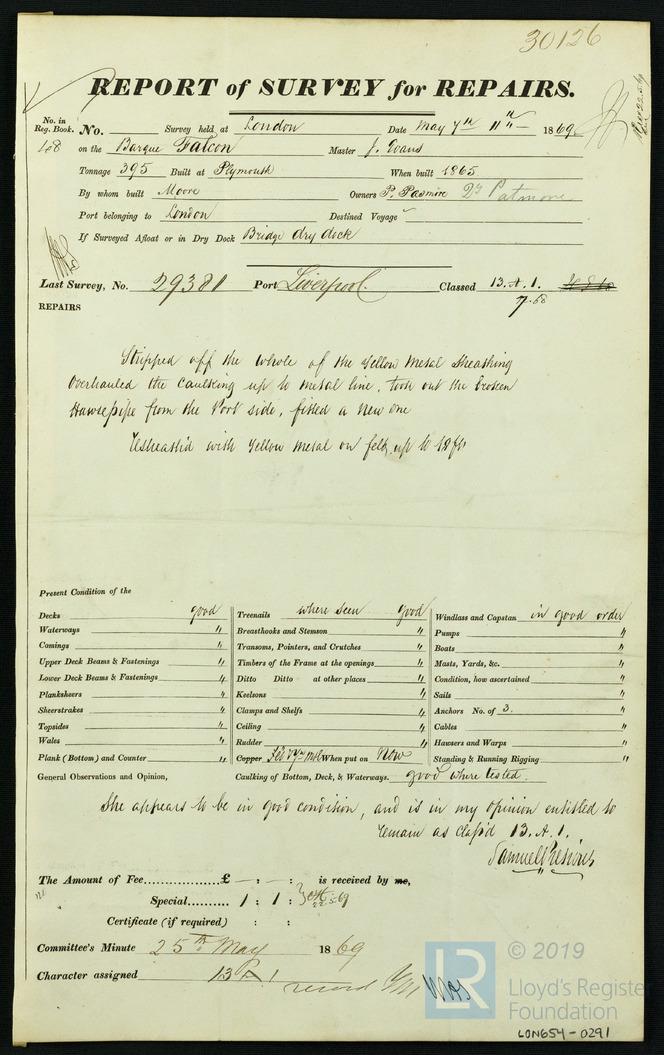 30126
REPORT of SURVEY for REPAIRS.
No. in Reg. Book. No. Survey held at London Date May 7th 11th 1869
68 on the Barque Falcon Master J. Evans
Tonnage 395 Built at Plymouth When built 1865
By whom built Moore Owners P. Pasmire Patmore
Port belonging to London Destined Voyage
If Surveyed Afloat or in Dry Dock Bridge dry dock
Last Survey, No. 29381 Port Liverpool Classed 13.A.1.
7.68
REPAIRS
Stripped off the whole of the Yellow Metal Sheathing
Overhauled the Caulking up to Metal line, took out the broken
Hawsepipe from the Port side, fitted a new one
Resheath'd with Yellow Metal on felt, up to 13 ft
Present Condition of the
Decks good
Waterways "
Comings "
Upper Deck Beams & Fastenings "
Lower Deck Beams & Fastenings "
Planksheers "
Sheerstrakes "
Topsides "
Wales "
Plank (Bottom) and Counter "
Treenails where seen good
Breasthooks and Stemson "
Transoms, Pointers, and Crutches "
Timbers of the Frame at the openings "
Ditto Ditto at other places "
Keelsons "
Clamps and Shelfs "
Ceiling "
Rudder "
Copper Felt & Y. Metl When put on Now
Windlass and Capstan in good order
Pumps "
Boats "
Masts, Yards, &c. "
Condition, how ascertained "
Sails "
Anchors No. of 3. "
Cables "
Hawsers and Warps "
Standing & Running Rigging "
General Observations and Opinion, Caulking of Bottom, Deck, & Waterways. good where tested.
She appears to be in good condition, and is in my opinion entitled to
remain as class'd 13.A.1.
Samuel Presious
The Amount of Fee................£ — : — : is received by me,
Special.......... 1 : 1 : 22.5.69
Certificate (if required) : :
Committee's Minute 25th May 1869
Character assigned 13 A 1
record
LR
© 2019
Lloyd's Register
Foundation
LON654-0291